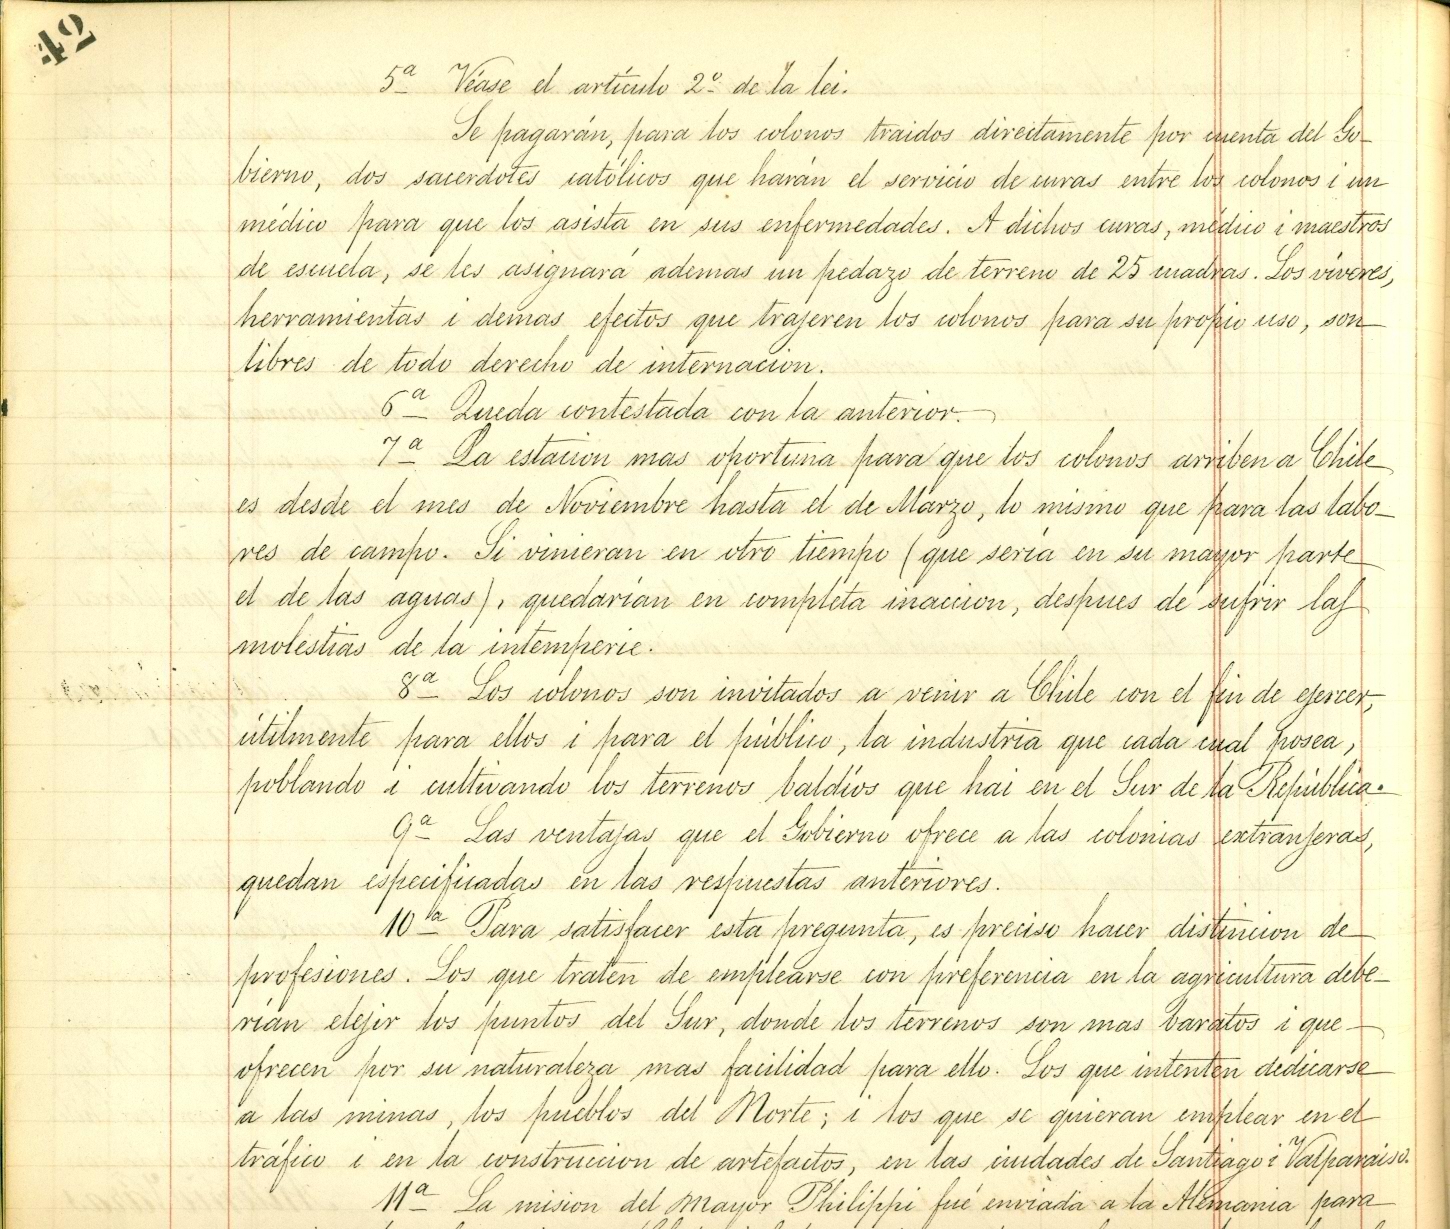 42
5ª Véase el artículo 2º de la lei.
Se pagarán, para los colonos traidos directamente por cuenta del Go-
bierno, dos sacerdotes católicos que harán el servicio de curas entre los colonos i un
médico para que los asista en sus enfermedades. A dichos curas, médico i maestros
de escuela, se les asignará ademas un pedazo de terreno de 25 cuadras. Los víveres,
herramientas i demas efectos que trajeren los colonos para su propio uso, son
libres de todo derecho de internacion.
6ª Queda contestada con la anterior.
7ª La estacion mas oportuna para que los colonos arriben a Chile
es desde el mes de Noviembre hasta el de Marzo, lo mismo que para las labo-
res de campo. Si vinieran en otro tiempo (que sería en su mayor parte
el de las aguas), quedarían en completa inaccion, despues de sufrir las
molestias de la intemperie.
8ª Los colonos son invitados a venir a Chile con el fin de ejercer,
útilmente para ellos i para el público, la industria que cada cual posea,
poblando i cultivando los terrenos baldíos que hai en el Sur de la República.
9ª Las ventajas que el Gobierno ofrece a las colonias extranjeras,
quedan especificadas en las respuestas anteriores.
10ª Para satisfacer esta pregunta, es preciso hacer distincion de
profesiones. Los que traten de emplearse con preferencia en la agricultura debe-
rían elejir los puntos del Sur, donde los terrenos son mas baratos i que
ofrecen por su naturaleza mas facilidad para ello. Los que intenten dedicarse
a las minas, los pueblos del Norte; i los que se quieran emplear en el
tráfico i en la construccion de artefactos, en las ciudades de Santiago i Valparaiso.
11ª La mision del Mayor Philippi fué enviada a la Alemania para